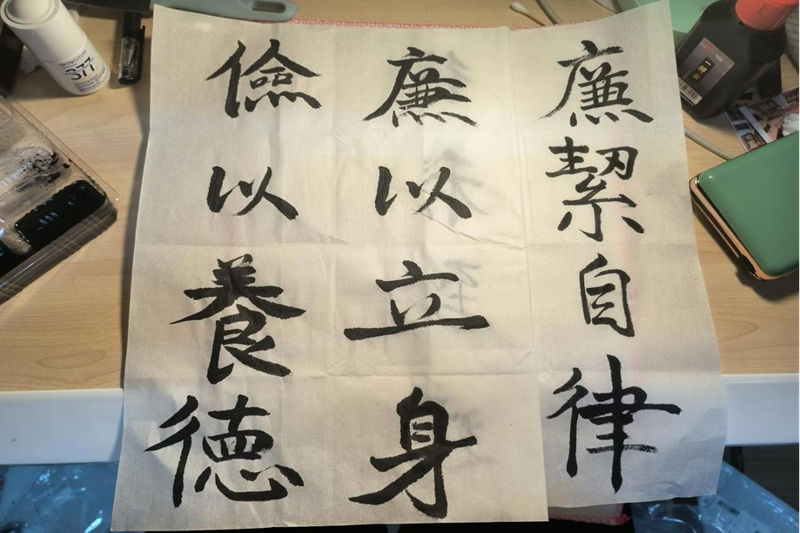 廉絜自律
廉以立身
儉以養德
377